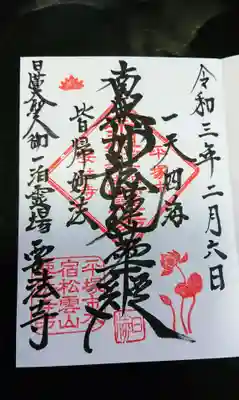 令和三年二月六日
一天四海
南無妙法蓮華経
皆帰妙法
日蓮聖人御一泊霊場 要法寺
平塚市
宿松雲山
要法寺